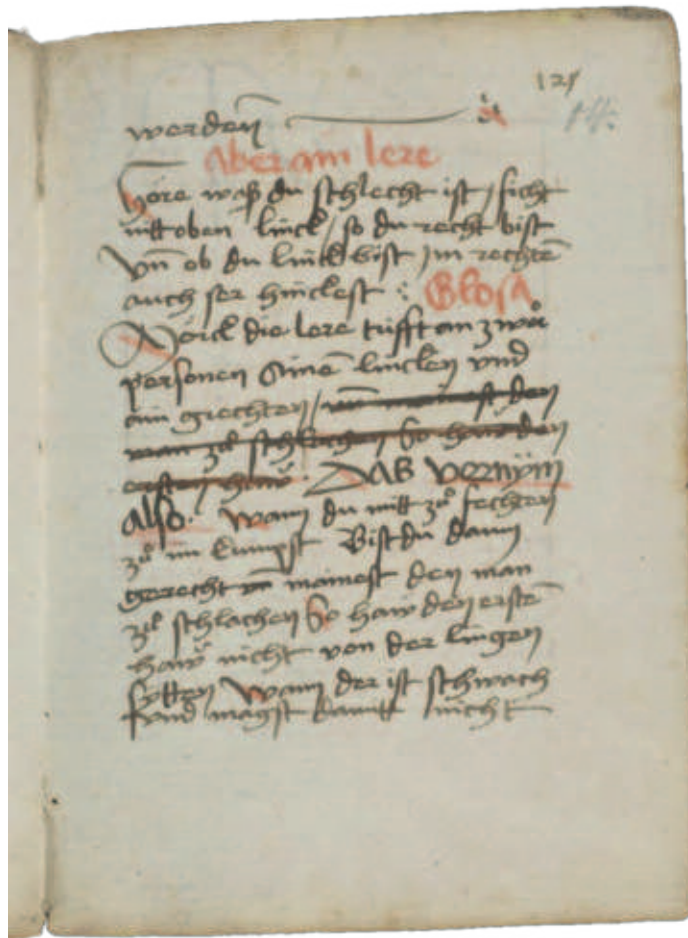 125
14.
werdeñ
Aber ain lere
Höre waß du schlecht ist / ficht
nitt oben linck / so du recht bist
Vñ ob du linck bist / im rechtē
auch ser hinckest : Glosa
Mörck die lere trifft an zwů
personen Ainē lincken vnd
ain grechten / vñ mainest den
man zů schlachen So haw den
ersten haw Das vernÿm
also. wann du mitt zů fechten
zů im kumpst Bist du dann
gerecht vñ mainest den man
zů schlachen So haw den erstē
haw nicht von der lingen
sÿtten Wann der ist schwach
vnd magst damitt nicht